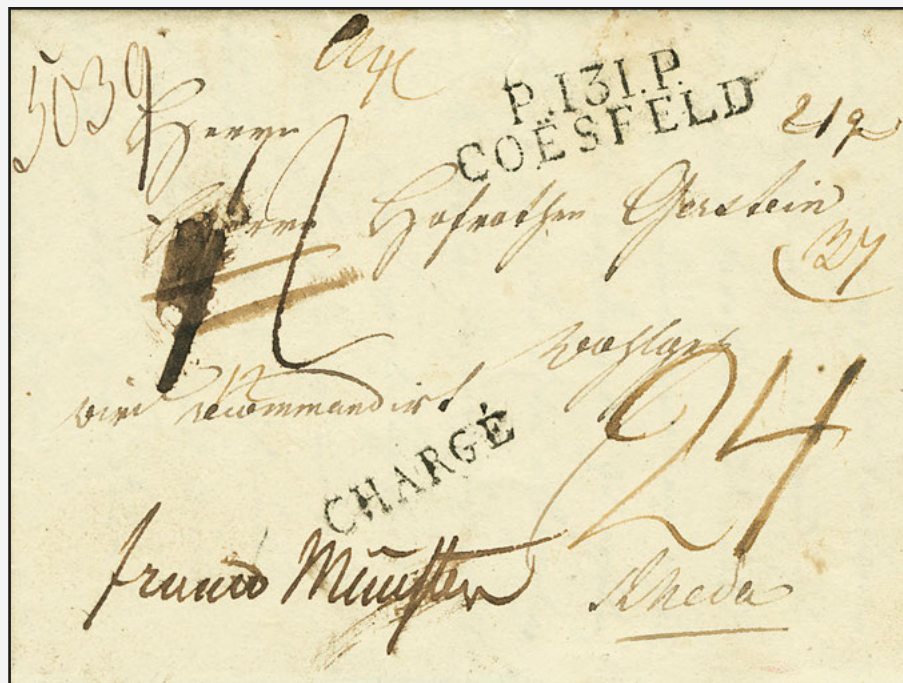 5039
P.131.P.
COËSFELD
Herrn
Herrn Hofrathen Gerstein
37
wird recommandirt
24
CHARGÉ
franco Münster
Rheda